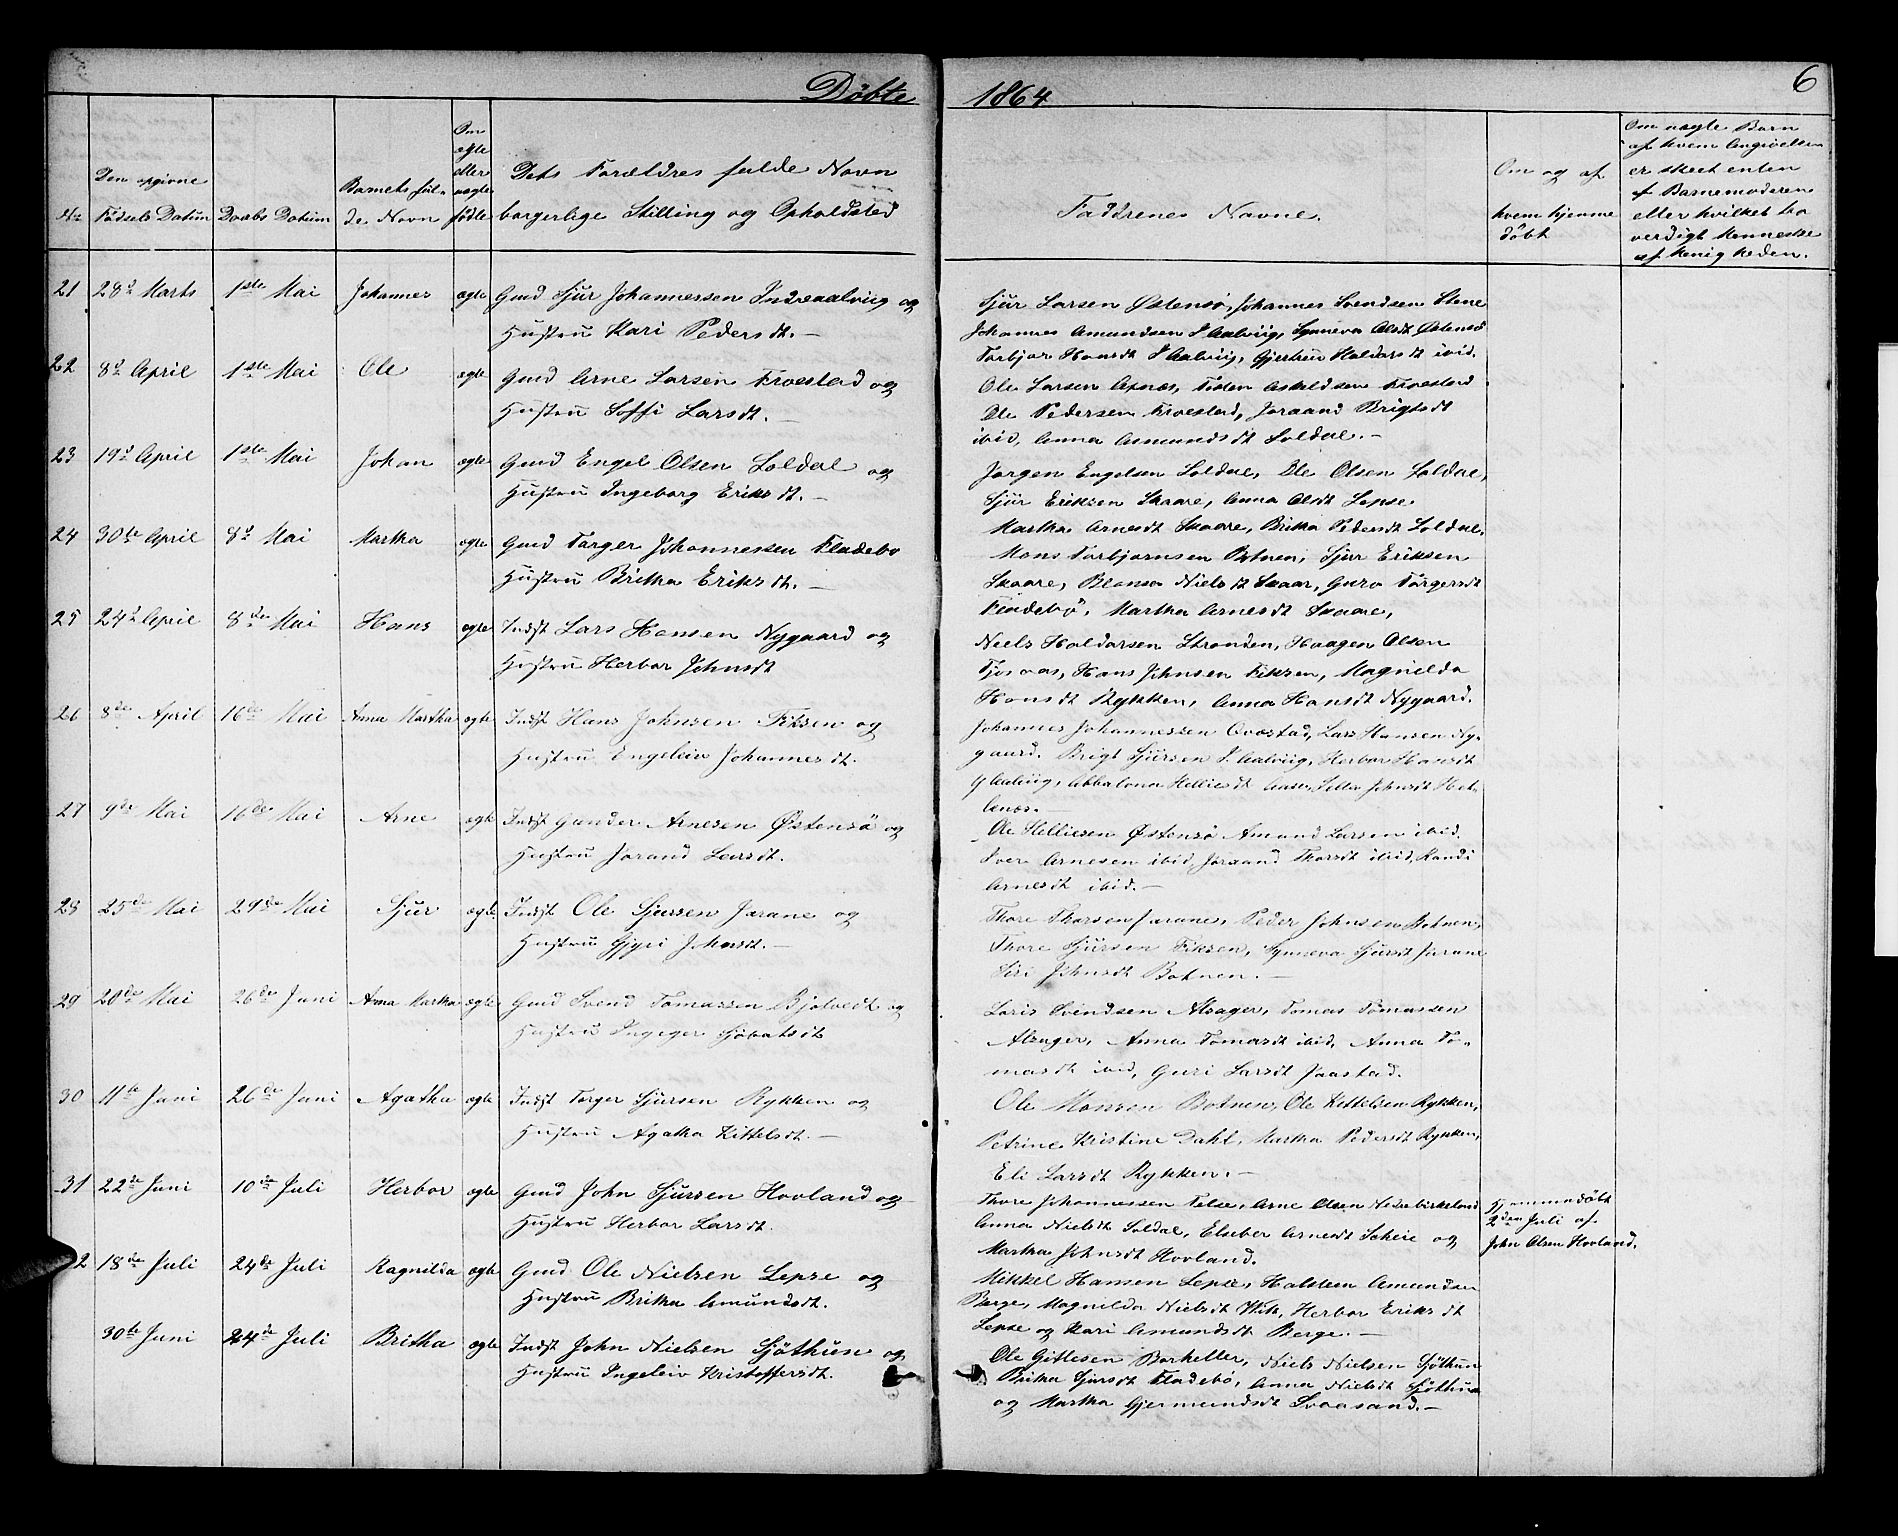 Döbte 1864 6
No Den opgivne Fødsels Datum Daabs Datum Barnets fulde Navn Om ægte eller uægte fødte Dets Forældres fulde Navn borgerlige Stilling og Opholdsted
Faddrenes Navne. Om og af hvem hjemmedöbt Om uægte Barn af hvem Angivelsen er skeet enten af Barnemoderen eller hvilket troverdigt Menneske af Menigheden.
21 28d Marts 1ste Mai Johannes ægte Gmd Sjur Johannessen Indreaalviig og
Hustru Kari Pedersdt. —
Sjur Larsen Østensö, Johannes Svendsen Stene
Johannes Amundsen I Aalviig, Synneva Olsdt Østensö
Torbjor Hansdt I Aalviig, Gjertrü Haldorsdt ibid.
22 8d April 1ste Mai Ole ægte Gmd Arne Larsen Froestad og
Hustru Soffi Larsdt. —
Ole Larsen Axnæs, Tosten Askeldsen Froestad
Ole Pedersen Froestad, Joraand Brigtsdt
ibid, Anna Amundsdt Soldal. —
23 19d April 1ste Mai Johan ægte Gmd Engel Olsen Soldal og
Hustru Ingeborg Eriksdt. —
Jørgen Engelsen Soldal, Ole Olsen Soldal,
Sjur Eriksen Skaare, Anna Olsdt Lepse
Martha Arnesdt Skaare, Britha Pedersdt Soldal.
24 30te April 8d Mai Martha ægte Gmd Torger Johannessen Fladebo
Hustru Britha Eriksdt. —
Mons Torbjørnsen Botnen, Sjur Eriksen
Skaare, Nielsdt Skaar, Guro Torgersdt
Fladebö, Martha Arnesdt Skaare,
25 24d April 8de Mai Hans ægte Indst Lars Hansen Nygaard og
Hustru Herbor Johnsdt
Niels Haldorsen Stranden, Haagen Olsen
Tjosaas, Hans Johnsen Fiksen, Magnilda
Hansdt Rykken, Anna Hansdt Nygaard.
26 8de April 16de Mai Anna Martha ægte Indst Hans Johnsen Fiksen og
Hustru Engeleiv Johannesdt.
Johannes Johannessen Ovestad, Lars Hansen Ny-
gaard. Brigt Sjursen I Aalviig, Herbor Hansdt
Y Aalviig, Abbalona Helliesdt Aase, Johnsdt
27 9de Mai 16de Mai Arne ægte Indst Gunder Arnesen Østensö og
Hustru Jorand Larsdt.
Ole Helliesen Østensö Amund Larsen ibid.
Iver Arnesen ibid, Joraand Thorsdt ibid, Randi
Arnesdt ibid. —
28 25de Mai 29de Mai Sjur ægte Indst Ole Sjursen Jarane og
Hustru Gjyri Johnsdt. —
Thore Thorsen Jarane, Peder Johnsen Botnen,
Thore Sjursen Fiksen, Synneva Sjursdt Jarane
Siri Johnsdt Botnen. —
29 20de Mai 26de Juni Anna Martha ægte Gmd Svend Tomassen Bjolvedt og
Hustru Ingeger Sjovatsdt
Lars Svendsen Alsager, Tomas Tomassen
Alsager, Anna Tomasdt ibid, Anna To-
masdt ibid, Guri Larsdt Jaastad.
30 11te Juni 26de Juni Agatha ægte Indst Torger Sjursen Rykken og
Hustru Agatha Kittelsdt. —
Ole Monsen Botnen, Ole Kittelsen Rykken,
Petrine Kristine Dahl, Martha Pedersdt Rykken,
Eli Larsdt Rykken. —
31 22de Juni 10de Juli Herbor ægte Gmd John Sjursen Hovland og
Hustru Herbor Larsdt.
Thore Johannessen Telse, Arne Olsen Nedrebirkeland
Anna Nielsdt Soldal, Elseber Arnesdt Scheie og
Martha Johnsdt Hovland.
Hjemmedöbt
2den Juli af
John Olsen Hovland.
2 18de Juli 24de Juli Magnilda ægte Gmd Ole Nielsen Lepse og
Hustru Britha Amundsdt.
Mikkel Hansen Lepse, Halsten Amundsen
Berge, Magnilda Nielsdt Wik, Herbor Eriksdt
Lepse og Kari Amundsdt Berge. —
30te Juni 24de Juli Britha ægte Indst John Nielsen Sjöthun og
Hustru Ingeleiv Kristoffersdt.
Ole Gittlesen Barheller, Niels Nielsen Sjöthun
Britha Sjursdt Fladebö, Anna Nielsdt Sjöthun
og Martha Gjermundsdt Svaasand. —